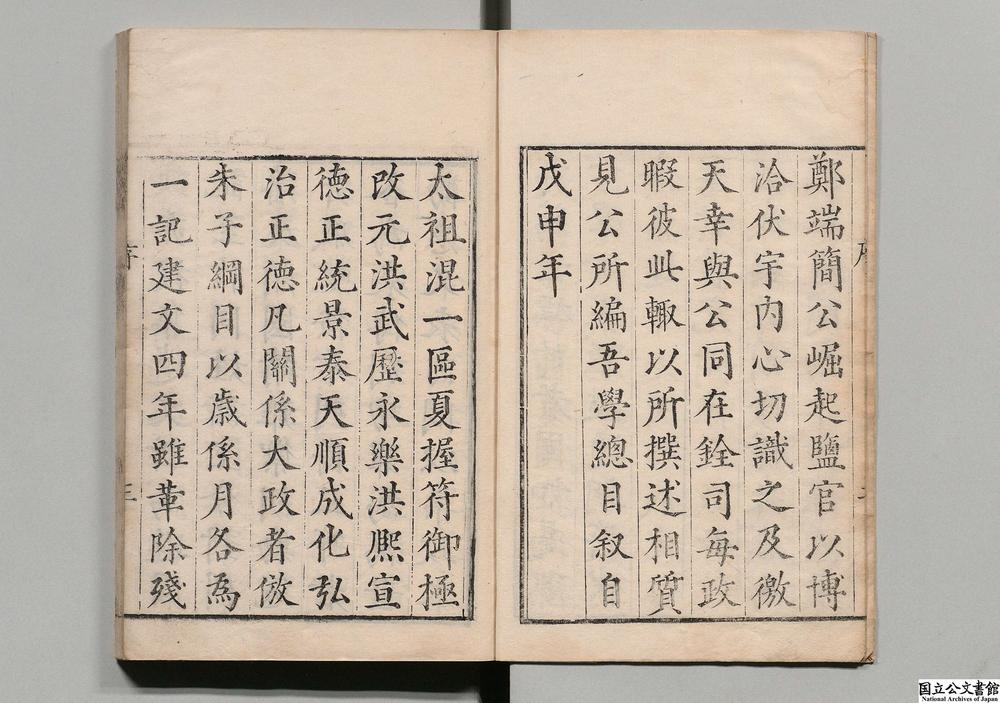 鄭端簡公崛起鹽官以博
洽伏宇内心切識之及徼
天幸與公同在銓司每政
暇彼此輙以所撰述相質
見公所編吾學總目叙自
戊申年
太祖混一區夏握符御極
改元洪武歷永樂洪熈宣
德正統景泰天順成化弘
治正德凡關係大政者倣
朱子綱目以歲係月各爲
一記建文四年雖革除殘
序
三
国立公文書館
National Archives of Japan